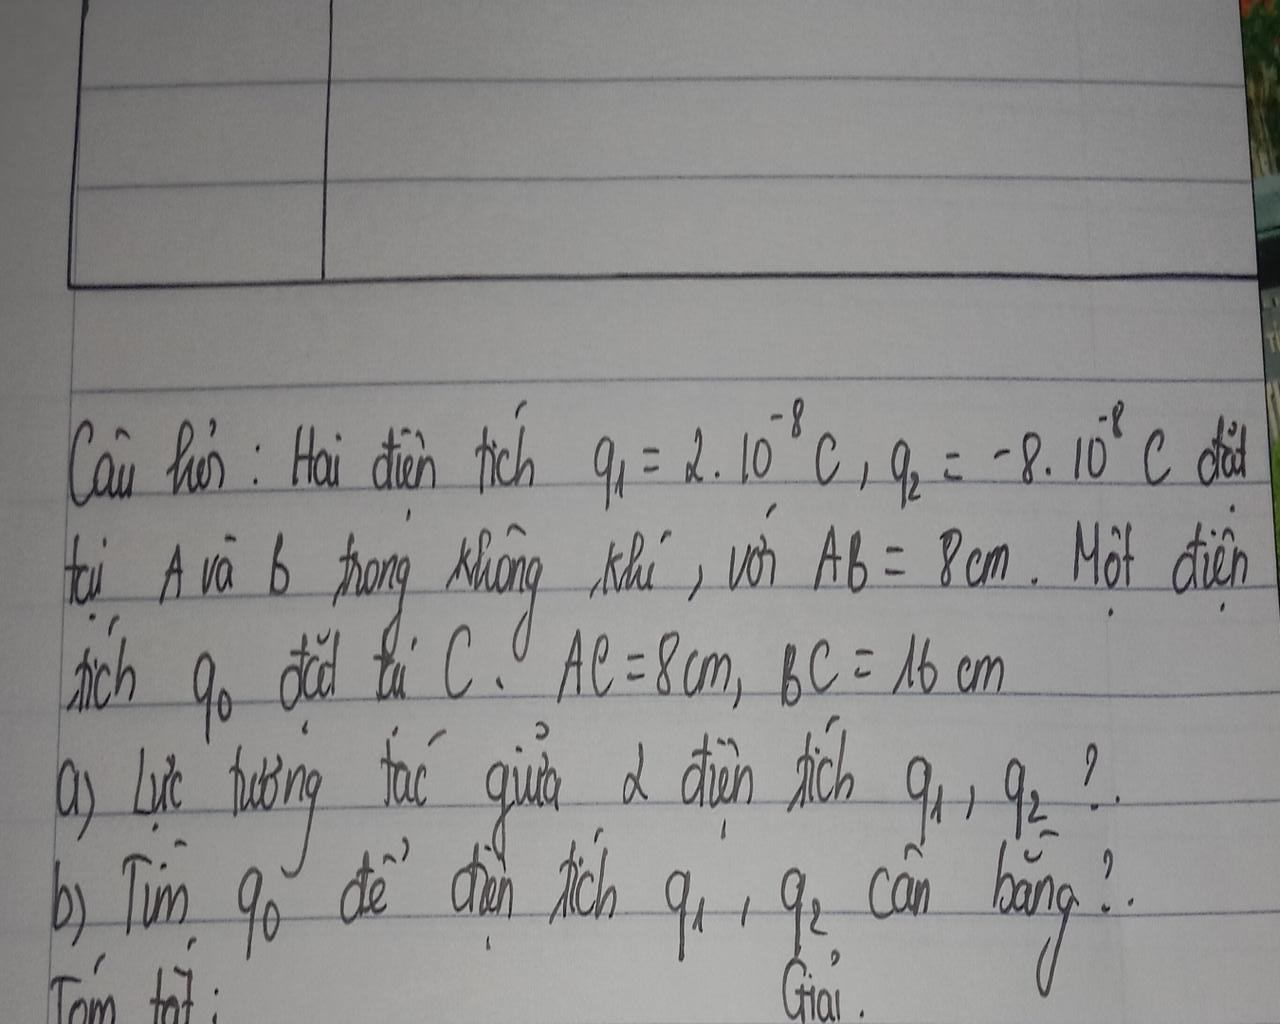 Câu hỏi: Hai điện tích q₁ = 2.10⁻⁸ C, q₂ = -8.10⁻⁸ C đặt
tại A và B trong không khí, với AB = 8cm. Một điện
tích q₀ đặt tại C. AC = 8cm, BC = 16 cm
a) Lực tương tác giữa 2 điện tích q₁, q₂?
b) Tìm q₀ để điện tích q₁, q₂ cân bằng?
Tóm tắt: Giải.